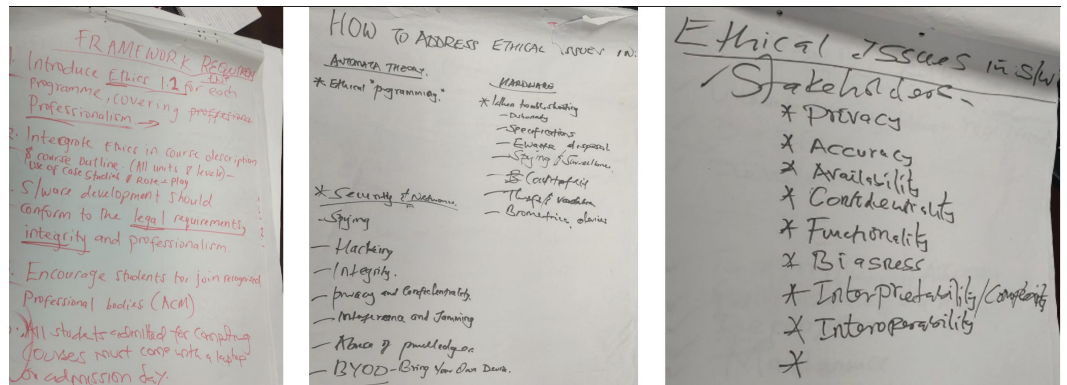 FRAMEWORK
1. Introduce Ethics 1:1 for each
programme, covering
Professionalism →
2. Intergrate Ethics in course description
& course outline. (All units & levels) –
Use of Case Studies & Role-play
S/ware development should
conform to the legal requirements,
integrity and professionalism.
Encourage students to join recognized
Professional bodies (ACM)
All students admitted for computing
Courses must come with a laptop
on admission day.
HOW TO ADDRESS ETHICAL ISSUES IN:
AUTOMATA THEORY.
* Ethical "programming."
* Security & Networks.
- Spying
- Hacking
- Integrity.
- privacy and Confidentiality.
- Interference and Jamming
- Abuse of
- BYOD - Bring Your Own Device.
HARDWARE
* When troubleshooting
- Dishonesty
- Specifications
- Ewaste disposal
- Spying & Surveillance.
- Counterfeit
- Theft &
- Biometrics devices
Ethical Issues in S/W
Stakeholders.
* Privacy
* Accuracy
* Availability
* Confidentiality
* Functionality
* Biasness
* Interpretability/Complexity
* Interoperability
*